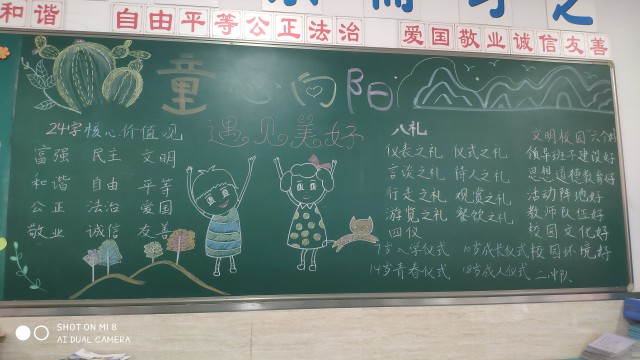 和谐 自由平等公正法治 爱国敬业诚信友善
童心向阳
遇见美好
24字核心价值观
富强 民主 文明
和谐 自由 平等
公正 法治 爱国
敬业 诚信 友善
八礼
仪表之礼 仪式之礼
言谈之礼 待人之礼
行走之礼 观赏之礼
游览之礼 餐饮之礼
四仪
7岁入学仪式 10岁成长仪式
14岁青春仪式 18岁成人仪式
文明校园六个好
领导班子建设好
思想道德教育好
活动阵地好
教师队伍好
校园文化好
校园环境好
二中队
SHOT ON MI 8
AI DUAL CAMERA